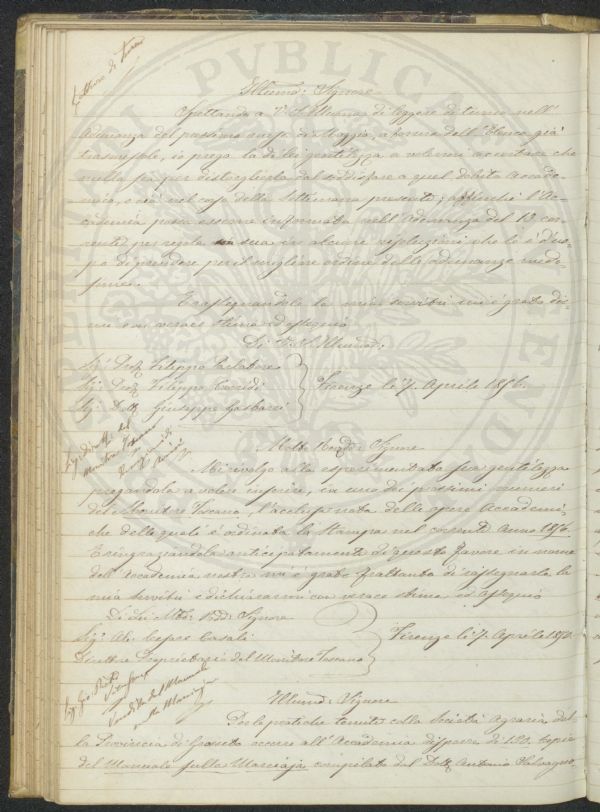 Letture di turno
Illumo: Signore
Spettando a V. S. Illuma di leggere di turno nell'
Adunanza del prossimo mese di Maggio, a forma dell'Elenco già
trasmessole, io prego la di lei gentilezza a volermi accertare che
nulla sia per distoglierla dal soddisfare a quel debito Accade-
mico, e ciò nel corso della settimana presente; affinchè l'Ac-
cademia possa esserne informata nell'Adunanza del 13 cor-
rente per regola sua in alcune risoluzioni che le è d'uo-
po di prendere per il migliore ordine delle adunanze mede-
sime.
E rassegnandole la mia servitù mi è grato dir-
mi con verace stima ed ossequio
Di V. S. Illuma:
Sig. Prof. Filippo Parlatore
Sig. Prof. Filippo Corridi
Sig. Dott. Giuseppe Gasbarri
Firenze li 7. Aprile 1856.
Molto Revdo: Signore
Mi rivolgo alla esperimentata sua gentilezza
pregandola a volere inserire, in uno dei prossimi numeri
del Monitore Toscano, l'acclusa nota delle opere Accademi-
che delle quali è ordinata la stampa nel corrente Anno 1856.
E ringraziandola anticipatamente di questo favore in nome
dell'Accademia nostra mi è grato frattanto di rassegnarle la
mia servitù e dichiararmi con verace stima ed ossequio
Di Lei Mto: Revd: Signore
Sig. Ab. Cesare Casali
Direttore Proprietario del Monitore Toscano
Firenze li 7. Aprile 1856.
Vendita del Manuale
sulla Marciaja
Illumo: Signore
Per le pratiche tenute colla Società Agraria del-
la Provincia di Grosseto occorre all'Accademia disporre di 120. copie
del Manuale sulla Marciaja compilato dal Dott. Antonio Salvagnoli